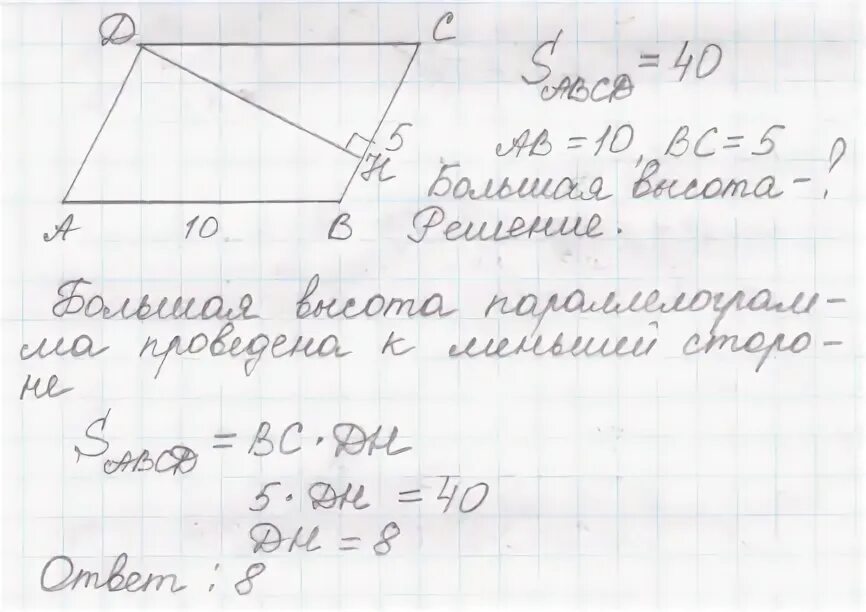 D C
S ABCD = 40
5
H
AB = 10, BC = 5
Большая высота - ?
A 10 B Решение.
Большая высота параллелограм-
ма проведена к меньшей сторо-
не
S ABCD = BC · DH
5 · DH = 40
DH = 8
Ответ : 8